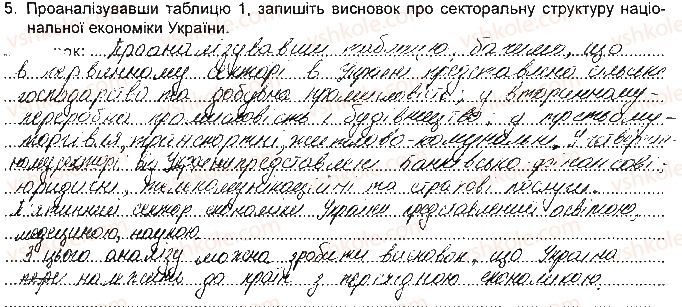 5. Проаналізувавши таблицю 1, запишіть висновок про секторальну структуру націо-
нальної економіки України.
ок: Проаналізувавши таблицю, бачимо, що
в первинному секторі в Україні представлена сільське
господарство та добувна промисловість; у вторинному -
переробна промисловість і будівництво; у третьому -
торгівля, транспортні, житлово-комунальні. У четвертин-
ному секторі від України представлені банківсько-фінансові,
юридичні, телекомунікаційні та страхові послуги.
П'ятинний сектор економіки України представлений освітою,
медициною, наукою.
З цього аналізу можна зробити висновок, що Україна
належить до країн з перехідною економікою.